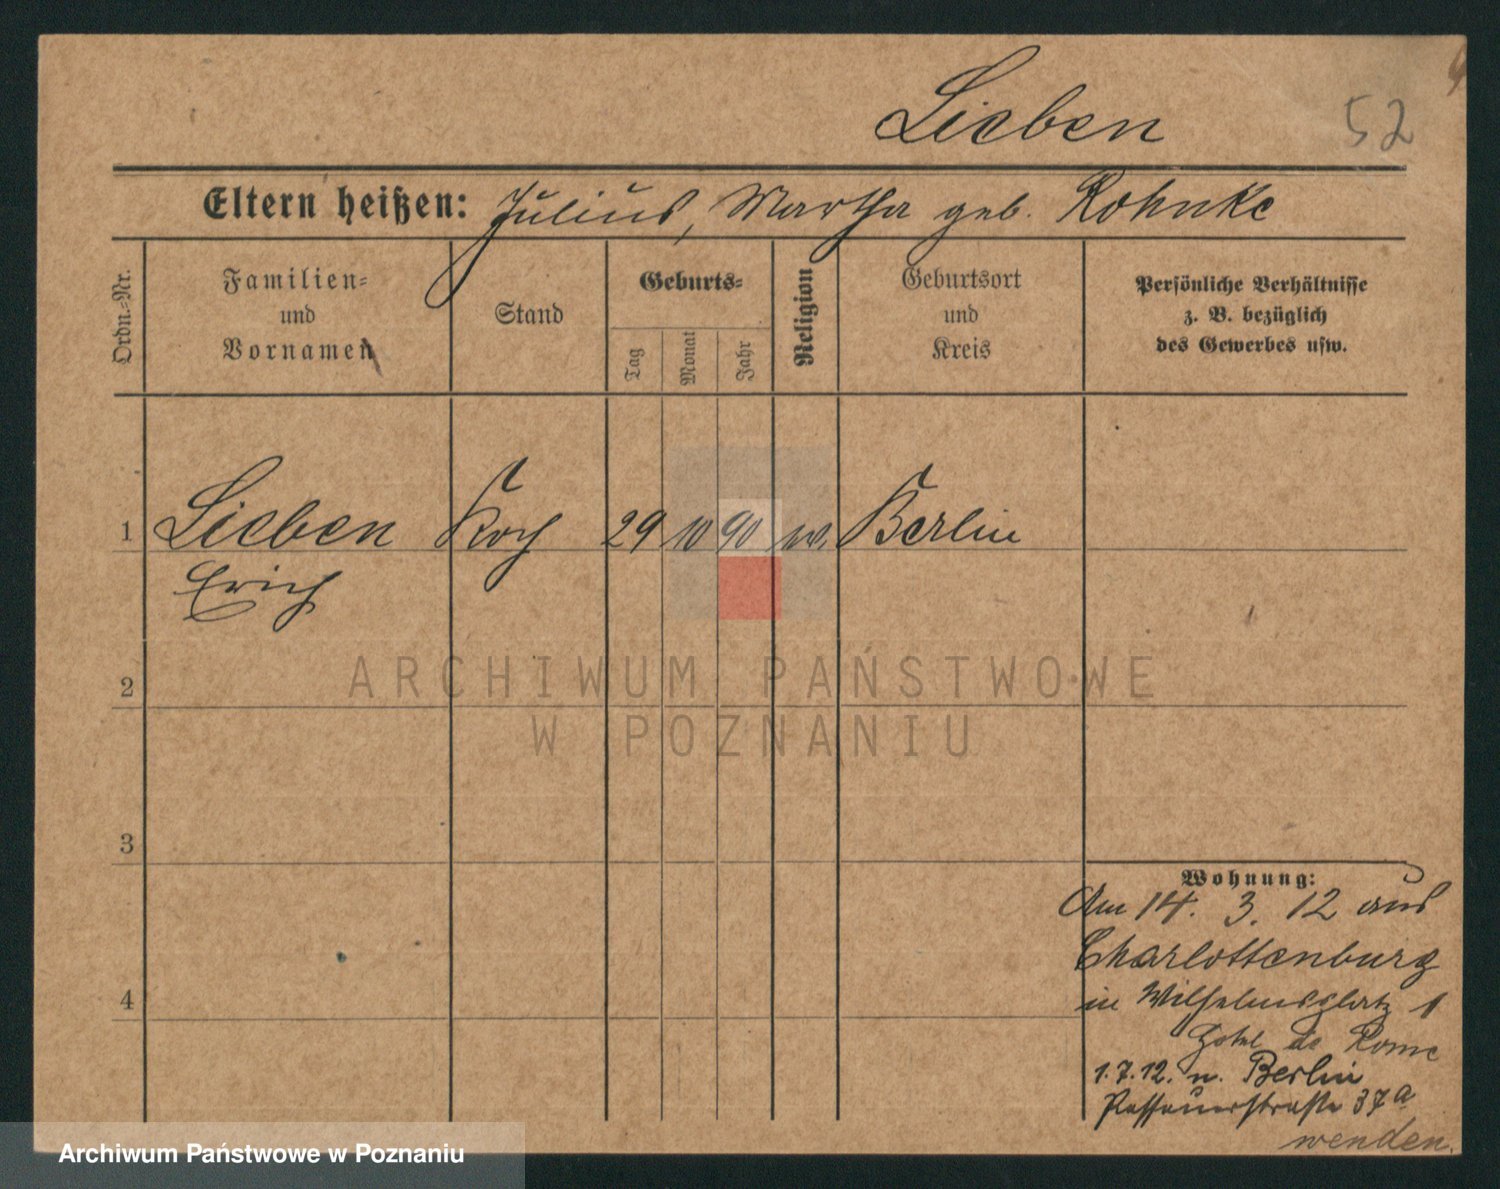 Lieben 52
Eltern heißen: Julius, Martha geb. Rohnke
Ordn.-Nr.
Familien-
und
Vornamen
Stand
Geburts-
Tag
Monat
Jahr
Religion
Geburtsort
und
Kreis
Persönliche Verhältnisse
z. B. bezüglich
des Gewerbes usw.
1 Lieben Koch 29 10 90 Berlin
Erich
2
ARCHIWUM PAŃSTWOWE
W POZNANIU
3
4
Wohnung:
Am 14. 3. 12 aus
Charlottenburg
in Wilhelmsplatz 1
Hotel de Rome
1.7.12. n. Berlin
Passauerstraße 37a
wenden.
Archiwum Państwowe w Poznaniu